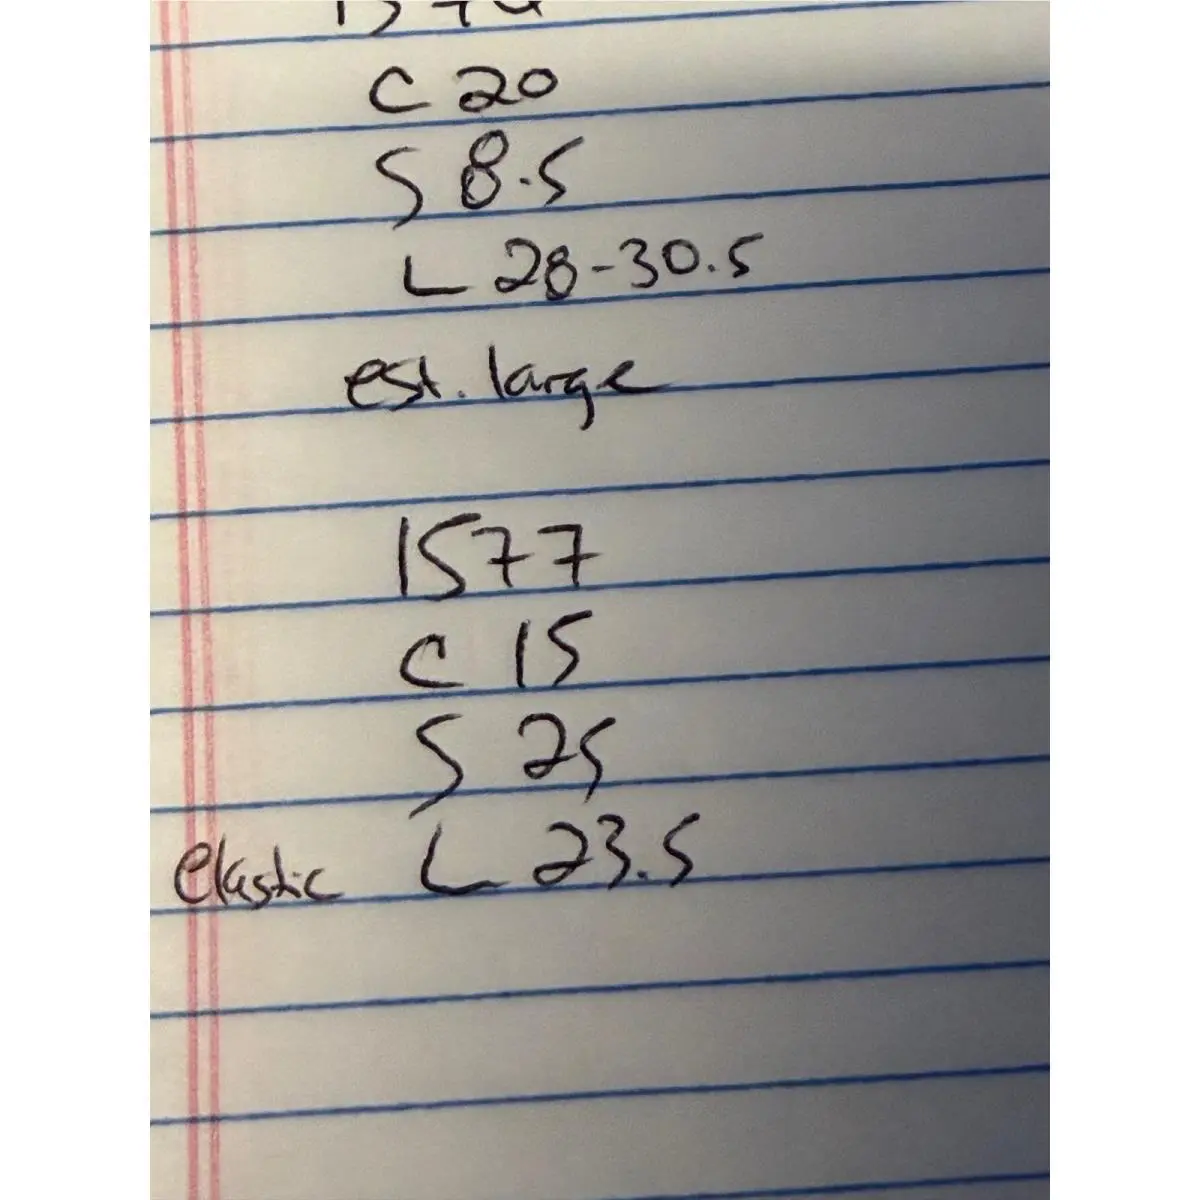 C 20
S 8.5
L 28-30.5
est. large
1577
C 15
S 25
elastic L 23.5